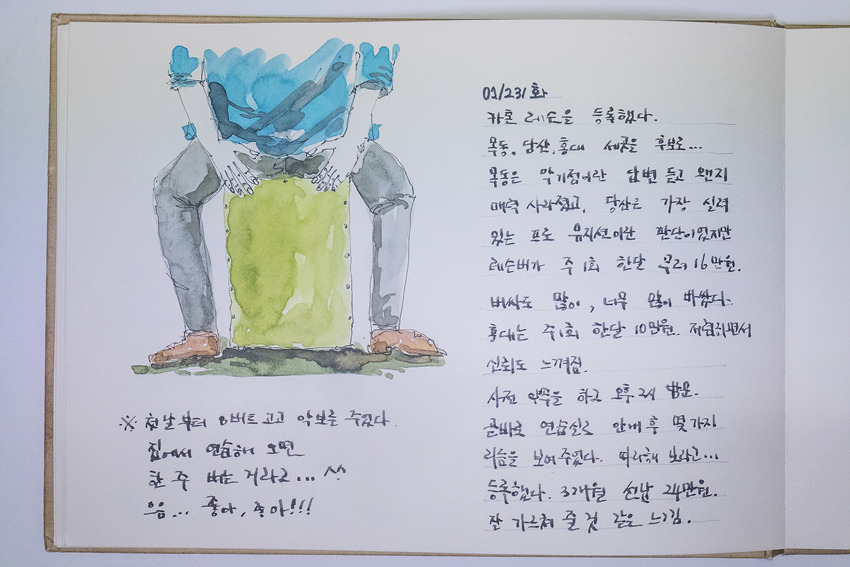 01/23/화
카혼 레슨을 등록했다.
목동, 당산, 홍대 세곳을 후보로...
목동은 악기점이란 답변 듣고 왠지
매력 사라졌고, 당산은 가장 실력
있는 프로 뮤지션이란 판단이었지만
레슨비가 주 1회 한달 무려 16만원.
비싸도 많이, 너무 많이 비쌌다.
홍대는 주1회 한달 10만원. 저렴하면서
신뢰도 느껴짐.
사전 약속을 하고 오후 2시 방문.
곧바로 연습실로 안내 후 몇가지
리듬을 보여주었다. 따라해 보라고...
등록했다. 3개월 선납 24만원.
잘 가르쳐 줄 것 같은 느낌.
※ 첫날부터 8비트 고고 악보를 주었다.
집에서 연습해 오면
한 주 버는 거라고... ^^
음... 좋아, 좋아!!!